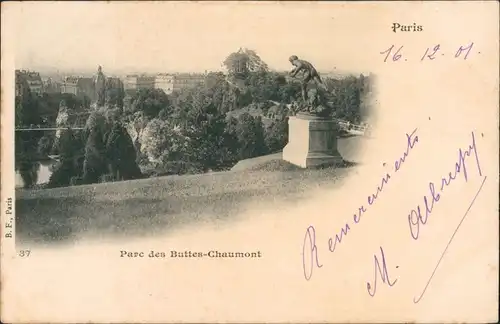 Paris
16.12.01
B. F., Paris
37
Parc des Buttes-Chaumont
Remerciements.
M. Albrespy